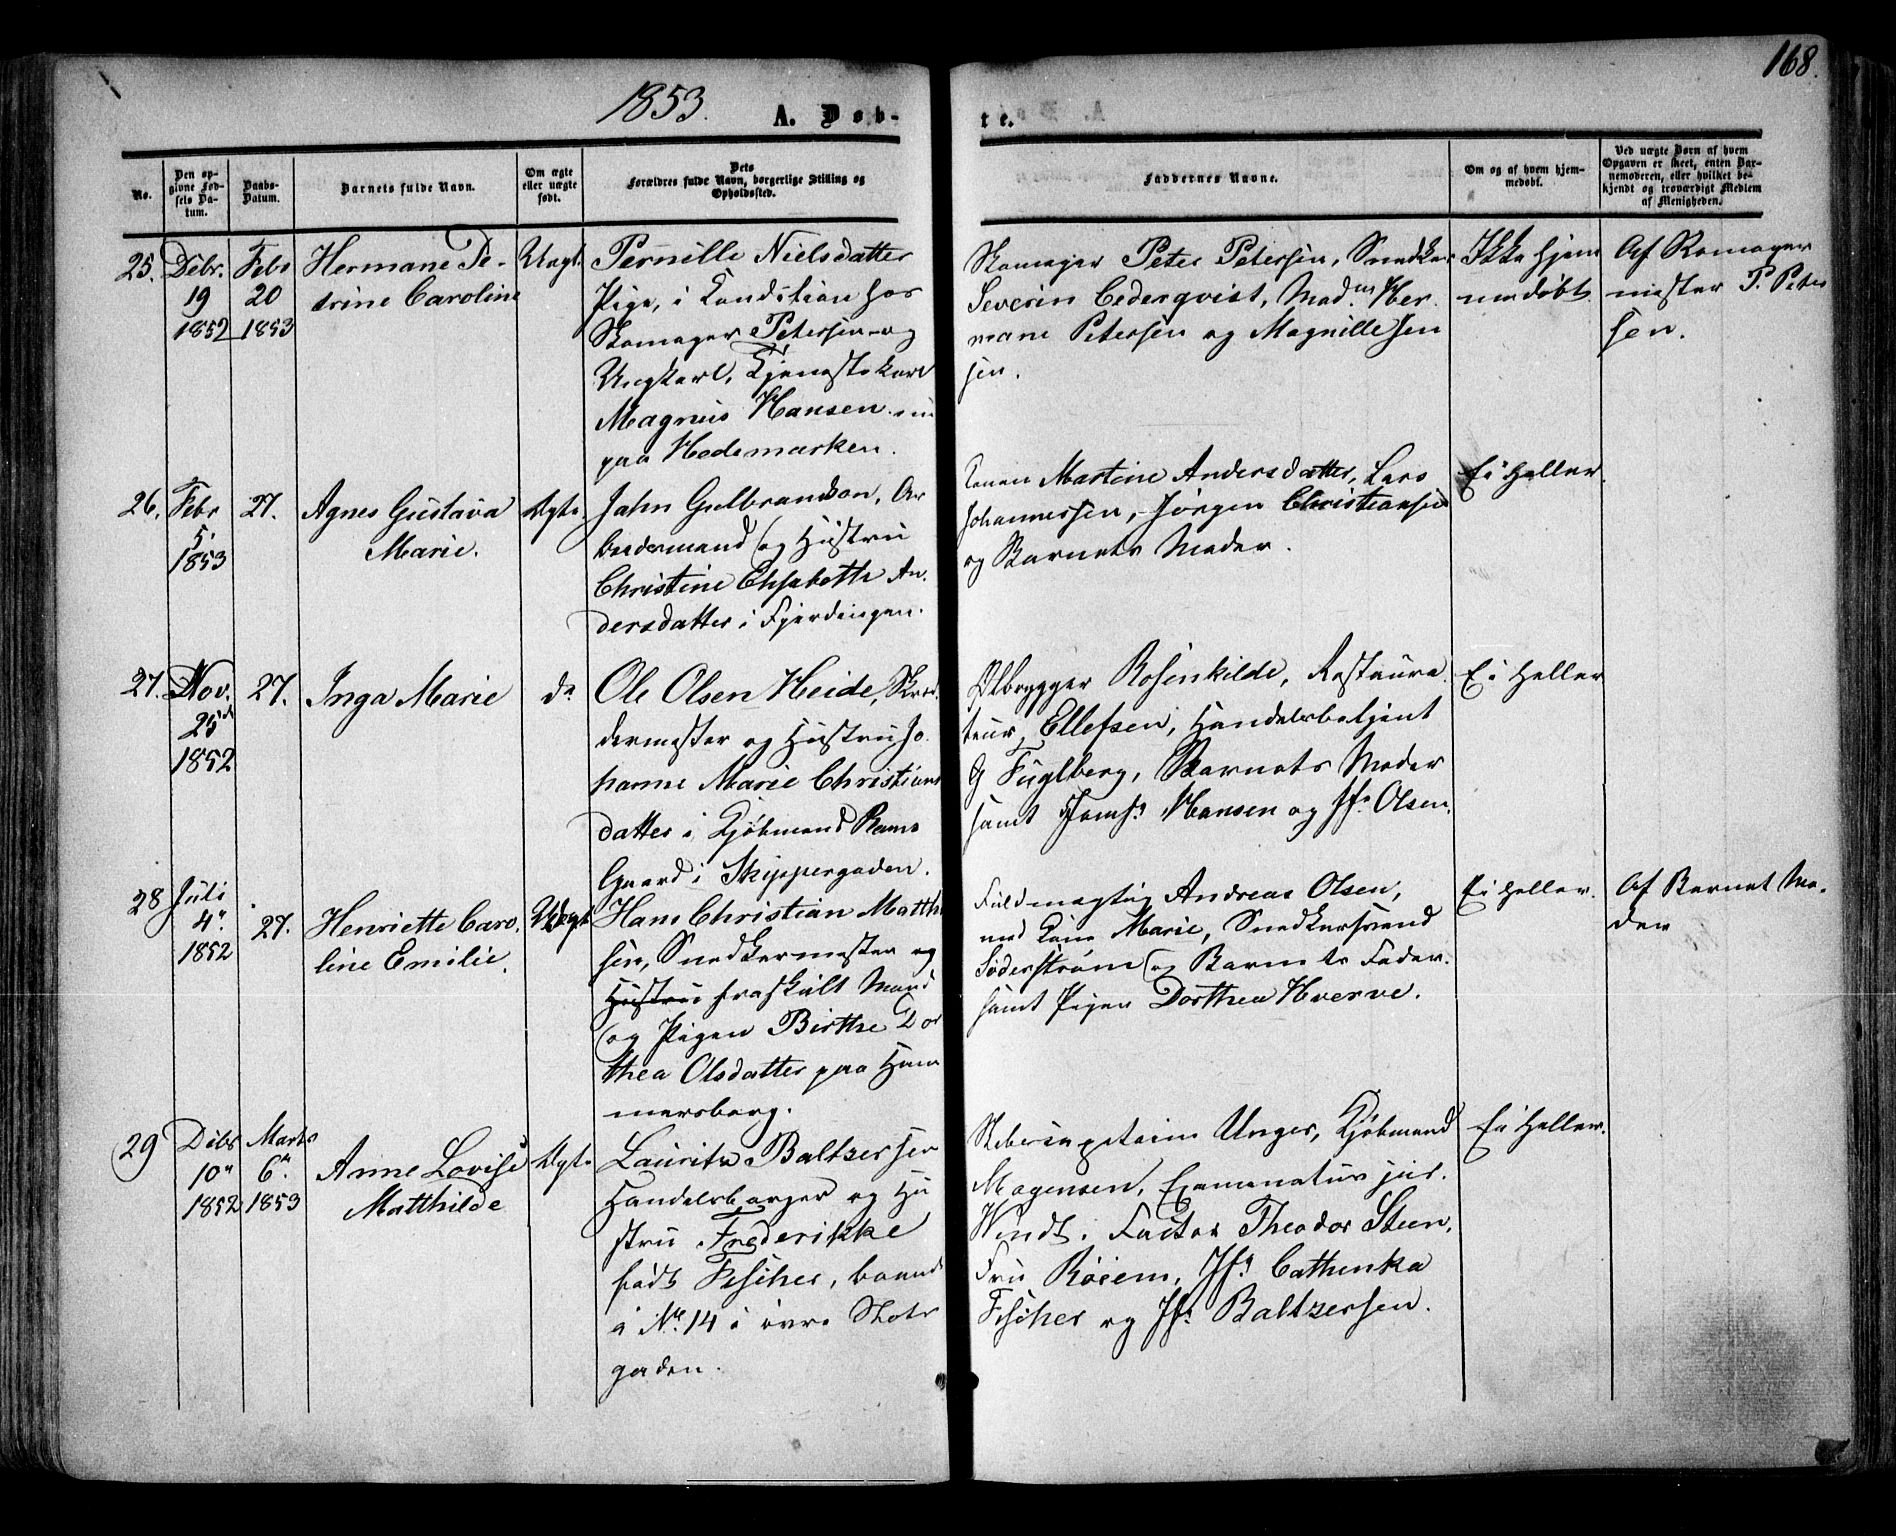 168.
1853.
A. Døb-
te.
No.
Den op-
givne Fød-
sels Da-
tum.
Daabs-
Datum.
Barnets fulde Navn.
Om ægte
eller uægte
født.
Dets
Forældres fulde Navn, borgerlige Stilling og
Opholdssted.
Faddernes Navne.
Om og af hvem hjem-
medøbt.
Ved uægte Børn af hvem
Opgaven er skeet, enten Bar-
nemoderen, eller hvilket be-
kjendt og troværdigt Medlem
af Menigheden.
25.
Debr.
19
1852
Febr
20
1853
Hermane Pe-
trine Caroline
Uægt.
Pernille Nielsdatter
Pige, i Condition hos
Skomager Petersen og
Ungkarl, Tjenestekarl
Magnus Hansen nu
paa Hedemarken.
Skomager Peter Petersen, Snedker
Severin Cederqvist, Mad.m Her-
mane Petersen og Magnille Jen
sen.
Ikke hjem
medøbt
Af Skomager
mester P. Peter
sen.
26.
Febr
5.
1853
27.
Agnes Gustava
Marie.
Ægte
John Gulbrandsen, Ar
beidsmand og Hustru
Christine Elisabeth An-
dersdatter i Fjerdingen.
Konen Martine Andersdatter, Lars
Johannessen, Jørgen Christiansen
og Barnets Moder.
Ei heller.
27.
Nov.
25d
1852
27.
Inga Marie
do
Ole Olsen Heide, Skræd-
dermester og Hustru Jo-
hanne Marie Christians
datter i Kjøbmand Rams
Gaard i Skippergaden.
Ølbrygger Rosenkilde, Restaura-
teur Ellefsen, Handelsbetjent
G Fuglberg, Barnets Moder
samt Jomf. Hansen og Jfr Olsen.
Ei heller
28
Juli
4n
1852
27.
Henriette Caro-
line Emilie.
Uægt
Hans Christian Matth
sen, Snedkermester og
Hustru fraskilt Mand
og Pigen Birthe Dor
thea Olsdatter paa Ham
mersborg.
Fuldmægtig Andreas Olsen,
med Kone Marie, Snedkersvend
Söderstrøm og Barnets Fader.
samt Pigen Dorthea Hverve.
Ei heller.
Af Barnet Mo-
der
29
Debr
10n
1852
Marts
6n
1853
Anne Lovise
Matthilde
Ægte
Lauritz Baltzersen
Handelsborger og Hu
stru Frederikke
født Fischer, boende
i No 14 i øvre Slots
gaden.
Unger, Kjøbmand
Mogensen, Examinatus jur.
Windt. Factor Theodor Steen,
Fru Röiem, Jfr Cathinka
Fischer og Jfr. Baltzersen.
Ei heller.